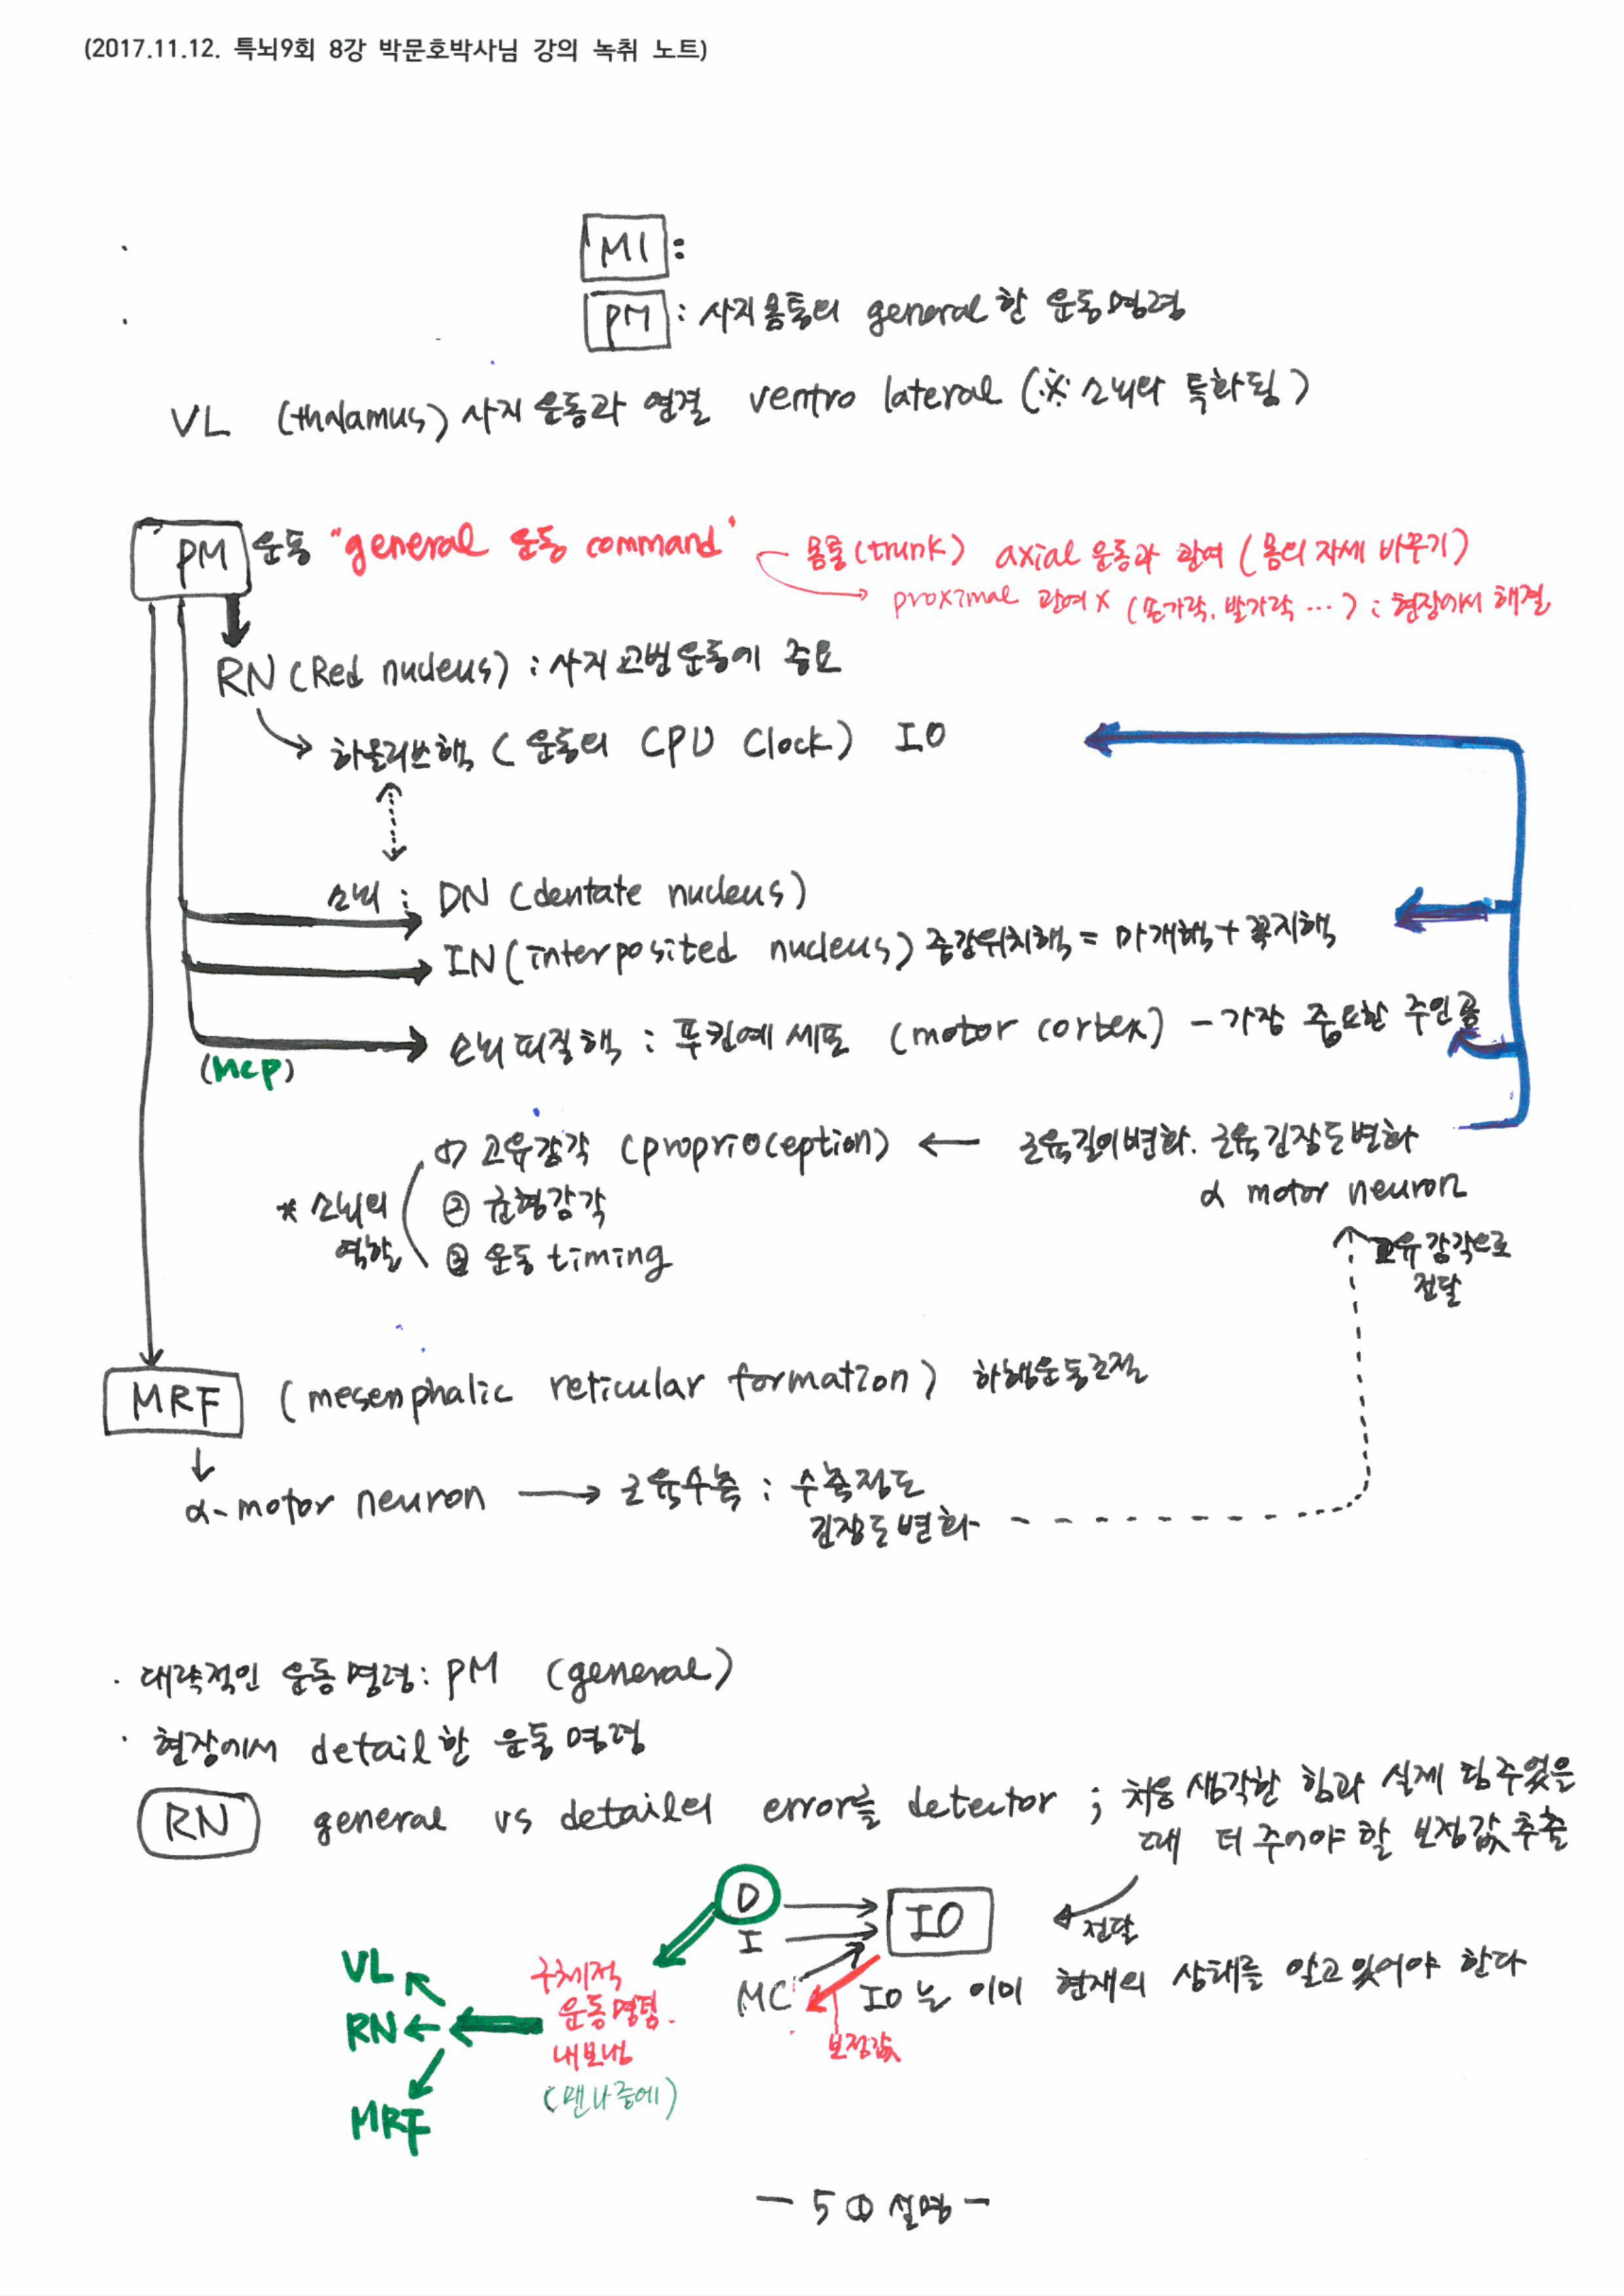 (2017.11.12. 특뇌9회 8강 박문호박사님 강의 녹취 노트)
M1 :
PM : 사지몸통의 general 한 운동명령
VL (thalamus) 사지 운동과 연결 ventro lateral (※ 소뇌와 특화됨)
PM 운동 "general 운동 command" 몸통(trunk) axial 운동과 관여 (몸의 자세 바꾸기)
proximal 관여 x (손가락, 발가락 ...) : 현장에서 해결
RN (Red nucleus) : 사지교번운동에 중요
하올리브핵 (운동의 CPU Clock) IO
소뇌 : DN (dentate nucleus)
IN (interposited nucleus) 중간위치핵 = 마개핵 + 꼭지핵
소뇌피질핵 : 푸킨예 세포 (motor cortex) - 가장 중요한 주인공
(MCP)
① 고유감각 (proprioception) ← 근육길이변화. 근육긴장도변화
* 소뇌의 역할 ② 균형감각
α motor neuron
③ 운동 timing
고유감각으로
전달
MRF (mesenphalic reticular formation) 하행운동조절
↓
α-motor neuron → 근육수축 : 수축정도
긴장도변화
· 대략적인 운동명령 : PM (general)
· 현장에서 detail한 운동명령
RN general vs detail의 error를 detector ; 처음 생각한 힘과 실제 힘주었을
때 더 주어야 할 보정값 추출
D
I
IO
전달
VL
구체적
운동명령.
내보냄
(맨나중에)
RN
MRF
MC
IO는 이미 현재의 상태를 알고 있어야 한다
보정값
- 5① 설명 -